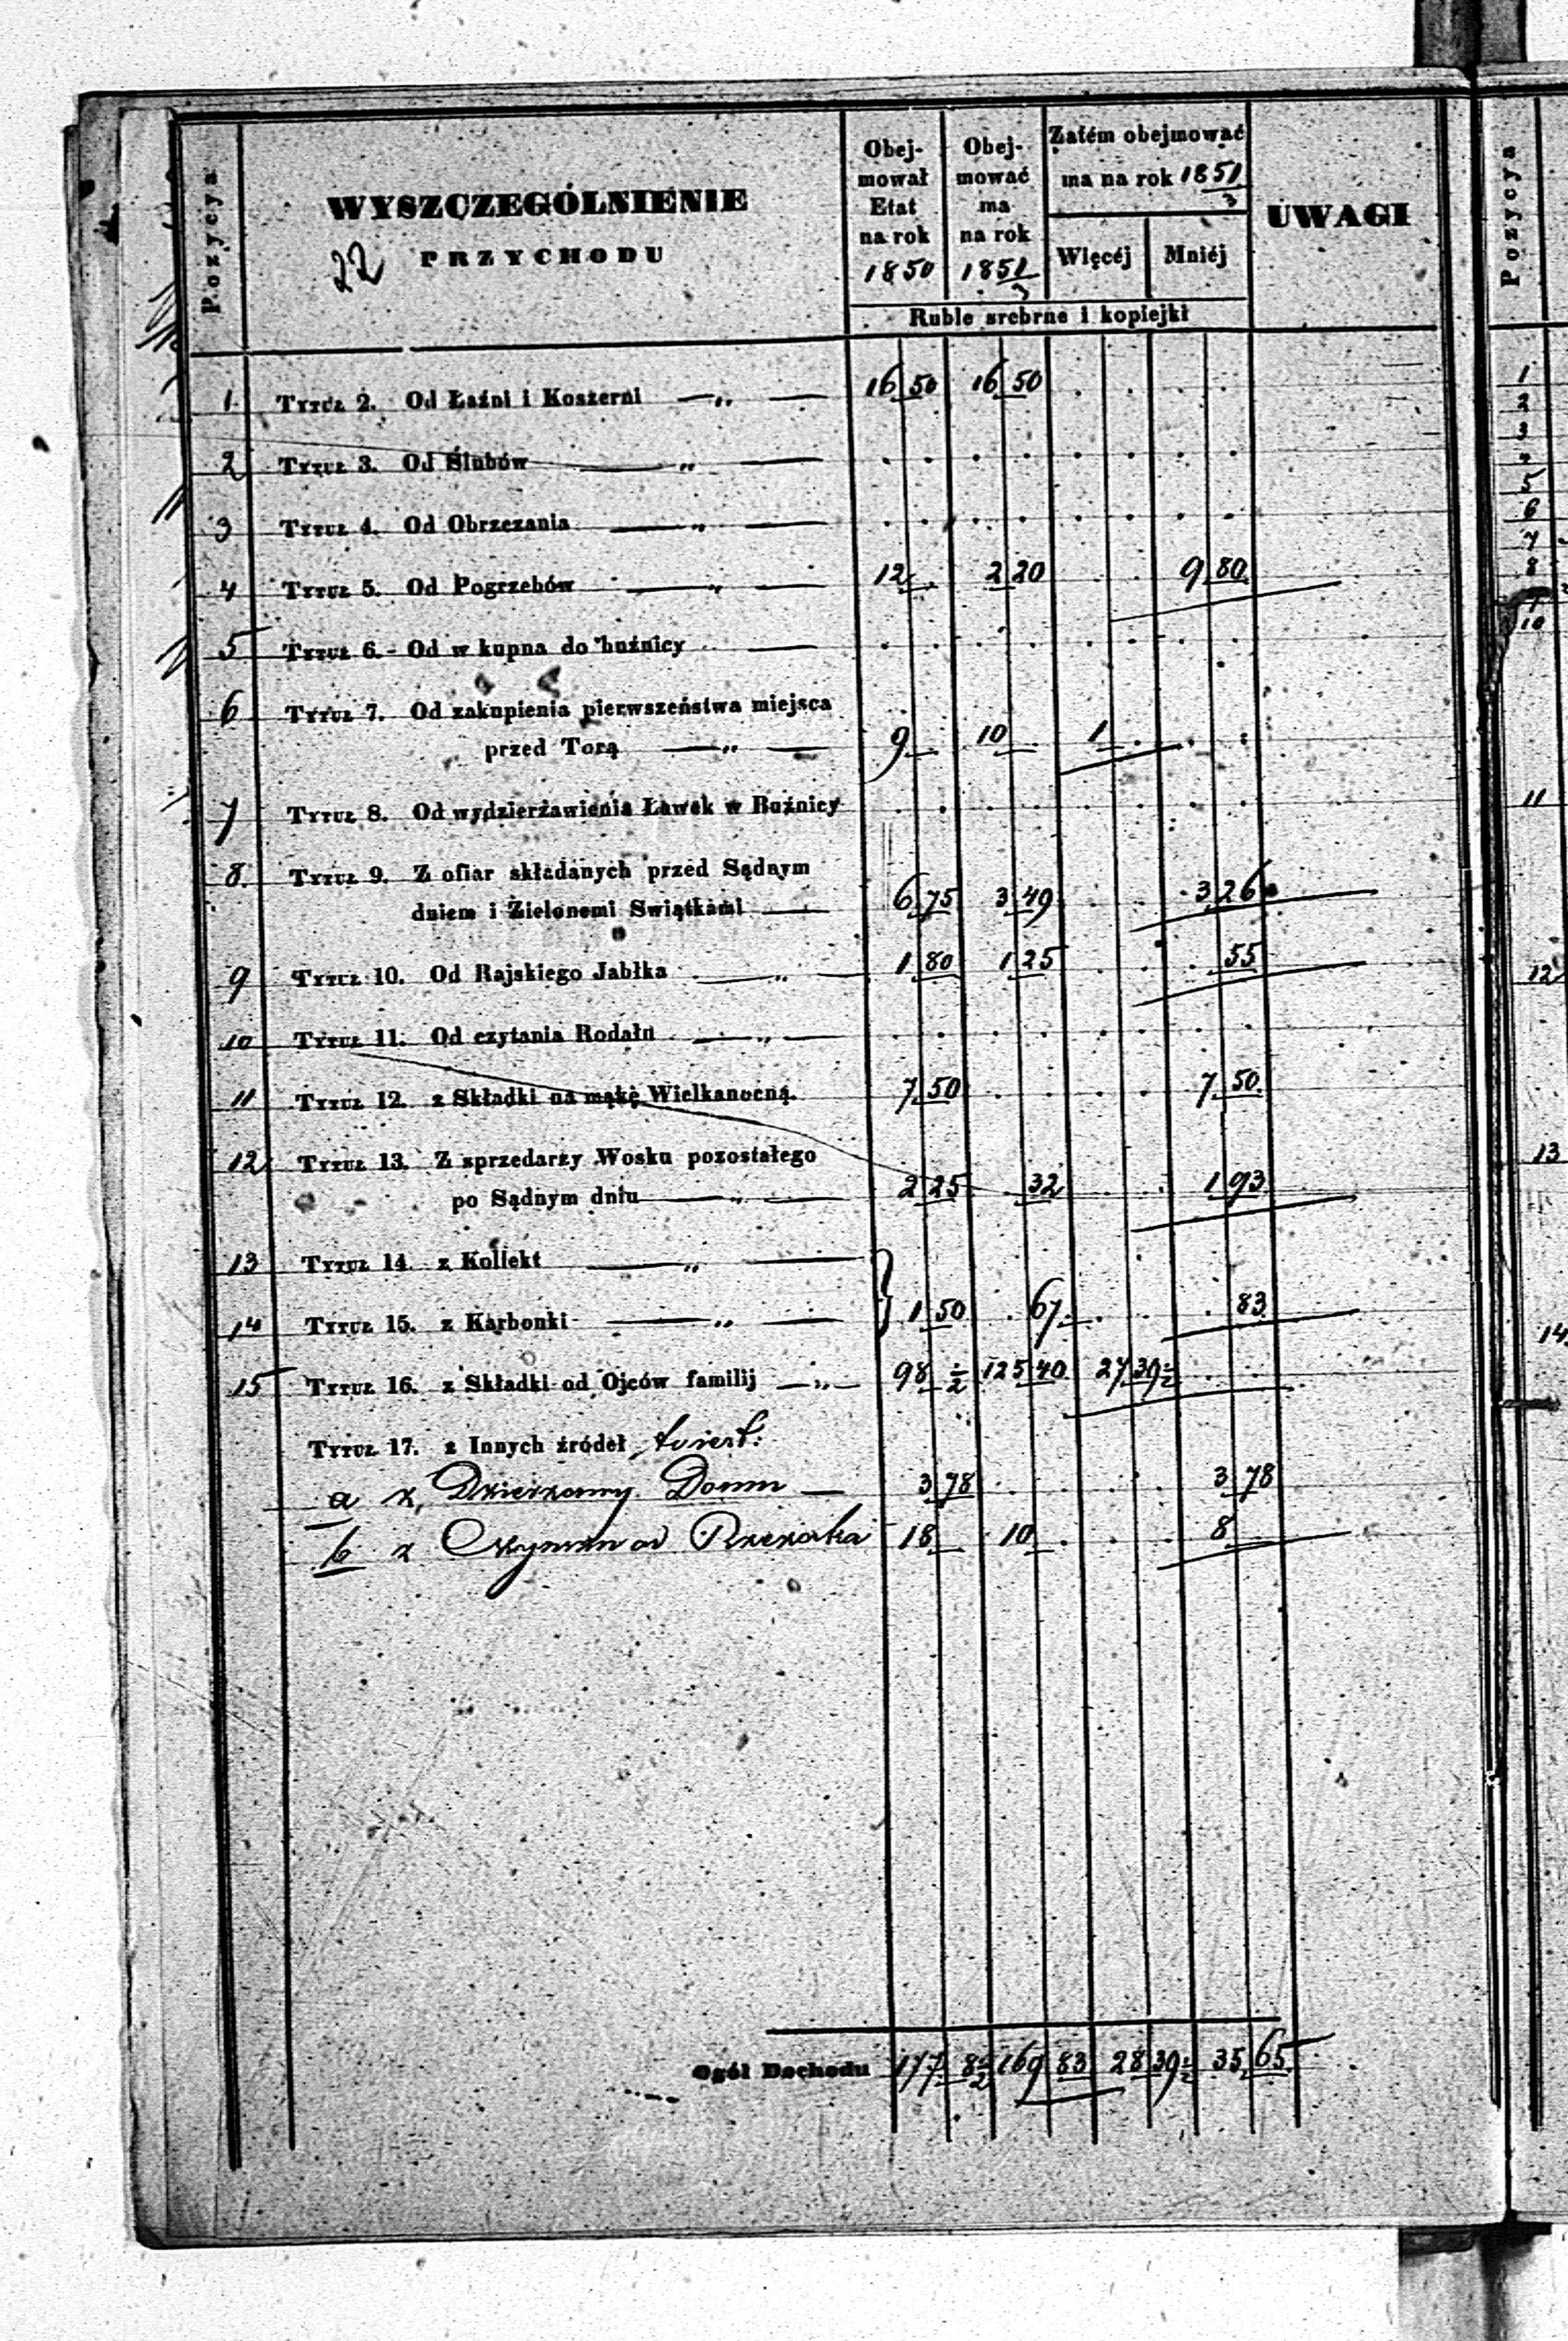 Pozycya
WYSZCZEGÓLNIENIE
22 PRZYCHODU
Obejmował Etat na rok 1850
Obejmować ma na rok 1851/3
Zatém obejmować ma na rok 1851/3
Więcéj Mniéj
UWAGI
Ruble srebrne i kopiejki
1 Tytuł 2. Od Łaźni i Koszerni — „ — 16 50 16 50 . . . .
2 Tytuł 3. Od Ślubów — „ — . . . . . . . .
3 Tytuł 4. Od Obrzezania — „ — . . . . . . . .
4 Tytuł 5. Od Pogrzebów — „ — 12 . 2 20 . . 9 80
5 Tytuł 6. - Od w kupna do buźnicy — . . . . . . . .
6 Tytuł 7. Od zakupienia pierwszeństwa miejsca
przed Torą — „ — 9 — 10 — 1 — . .
7 Tytuł 8. Od wydzierżawienia Ławek w Buźnicy . . . . . . . .
8. Tytuł 9. Z ofiar składanych przed Sądnym
dniem i Zielonemi Swiątkami — 6 75 3 49 . . 3 26
9 Tytuł 10. Od Rajskiego Jabłka — „ — 1 80 1 25 . . . 55
10 Tytuł 11. Od czytania Rodału — „ — . . . . . . . .
11 Tytuł 12. z Składki na mąkę Wielkanocną. 7 50 . . . . 7 50
12 Tytuł 13. Z sprzedarzy Wosku pozostałego
po Sądnym dniu — „ — 2 25 . 32 . . 1 93
13 Tytuł 14. z Kollekt — „ —
14 Tytuł 15. z Karbonki — „ — } 1 50 . 67 . . . 83
15 Tytuł 16. z Składki od Ojców familij — „ — 98 ½ 125 40 27 39½ . .
Tytuł 17. z Innych źródeł
a z Dzierżawy Domu — 3 78 . . . . 3 78
b z Czynszu od Rzezaka 18 — 10 — . . 8 —
Ogół Dochodu 177 8½ 169 83 28 39½ 35 65
Pozycya
1
2
3
4
5
6
7
8
9
10
11
12
13
14